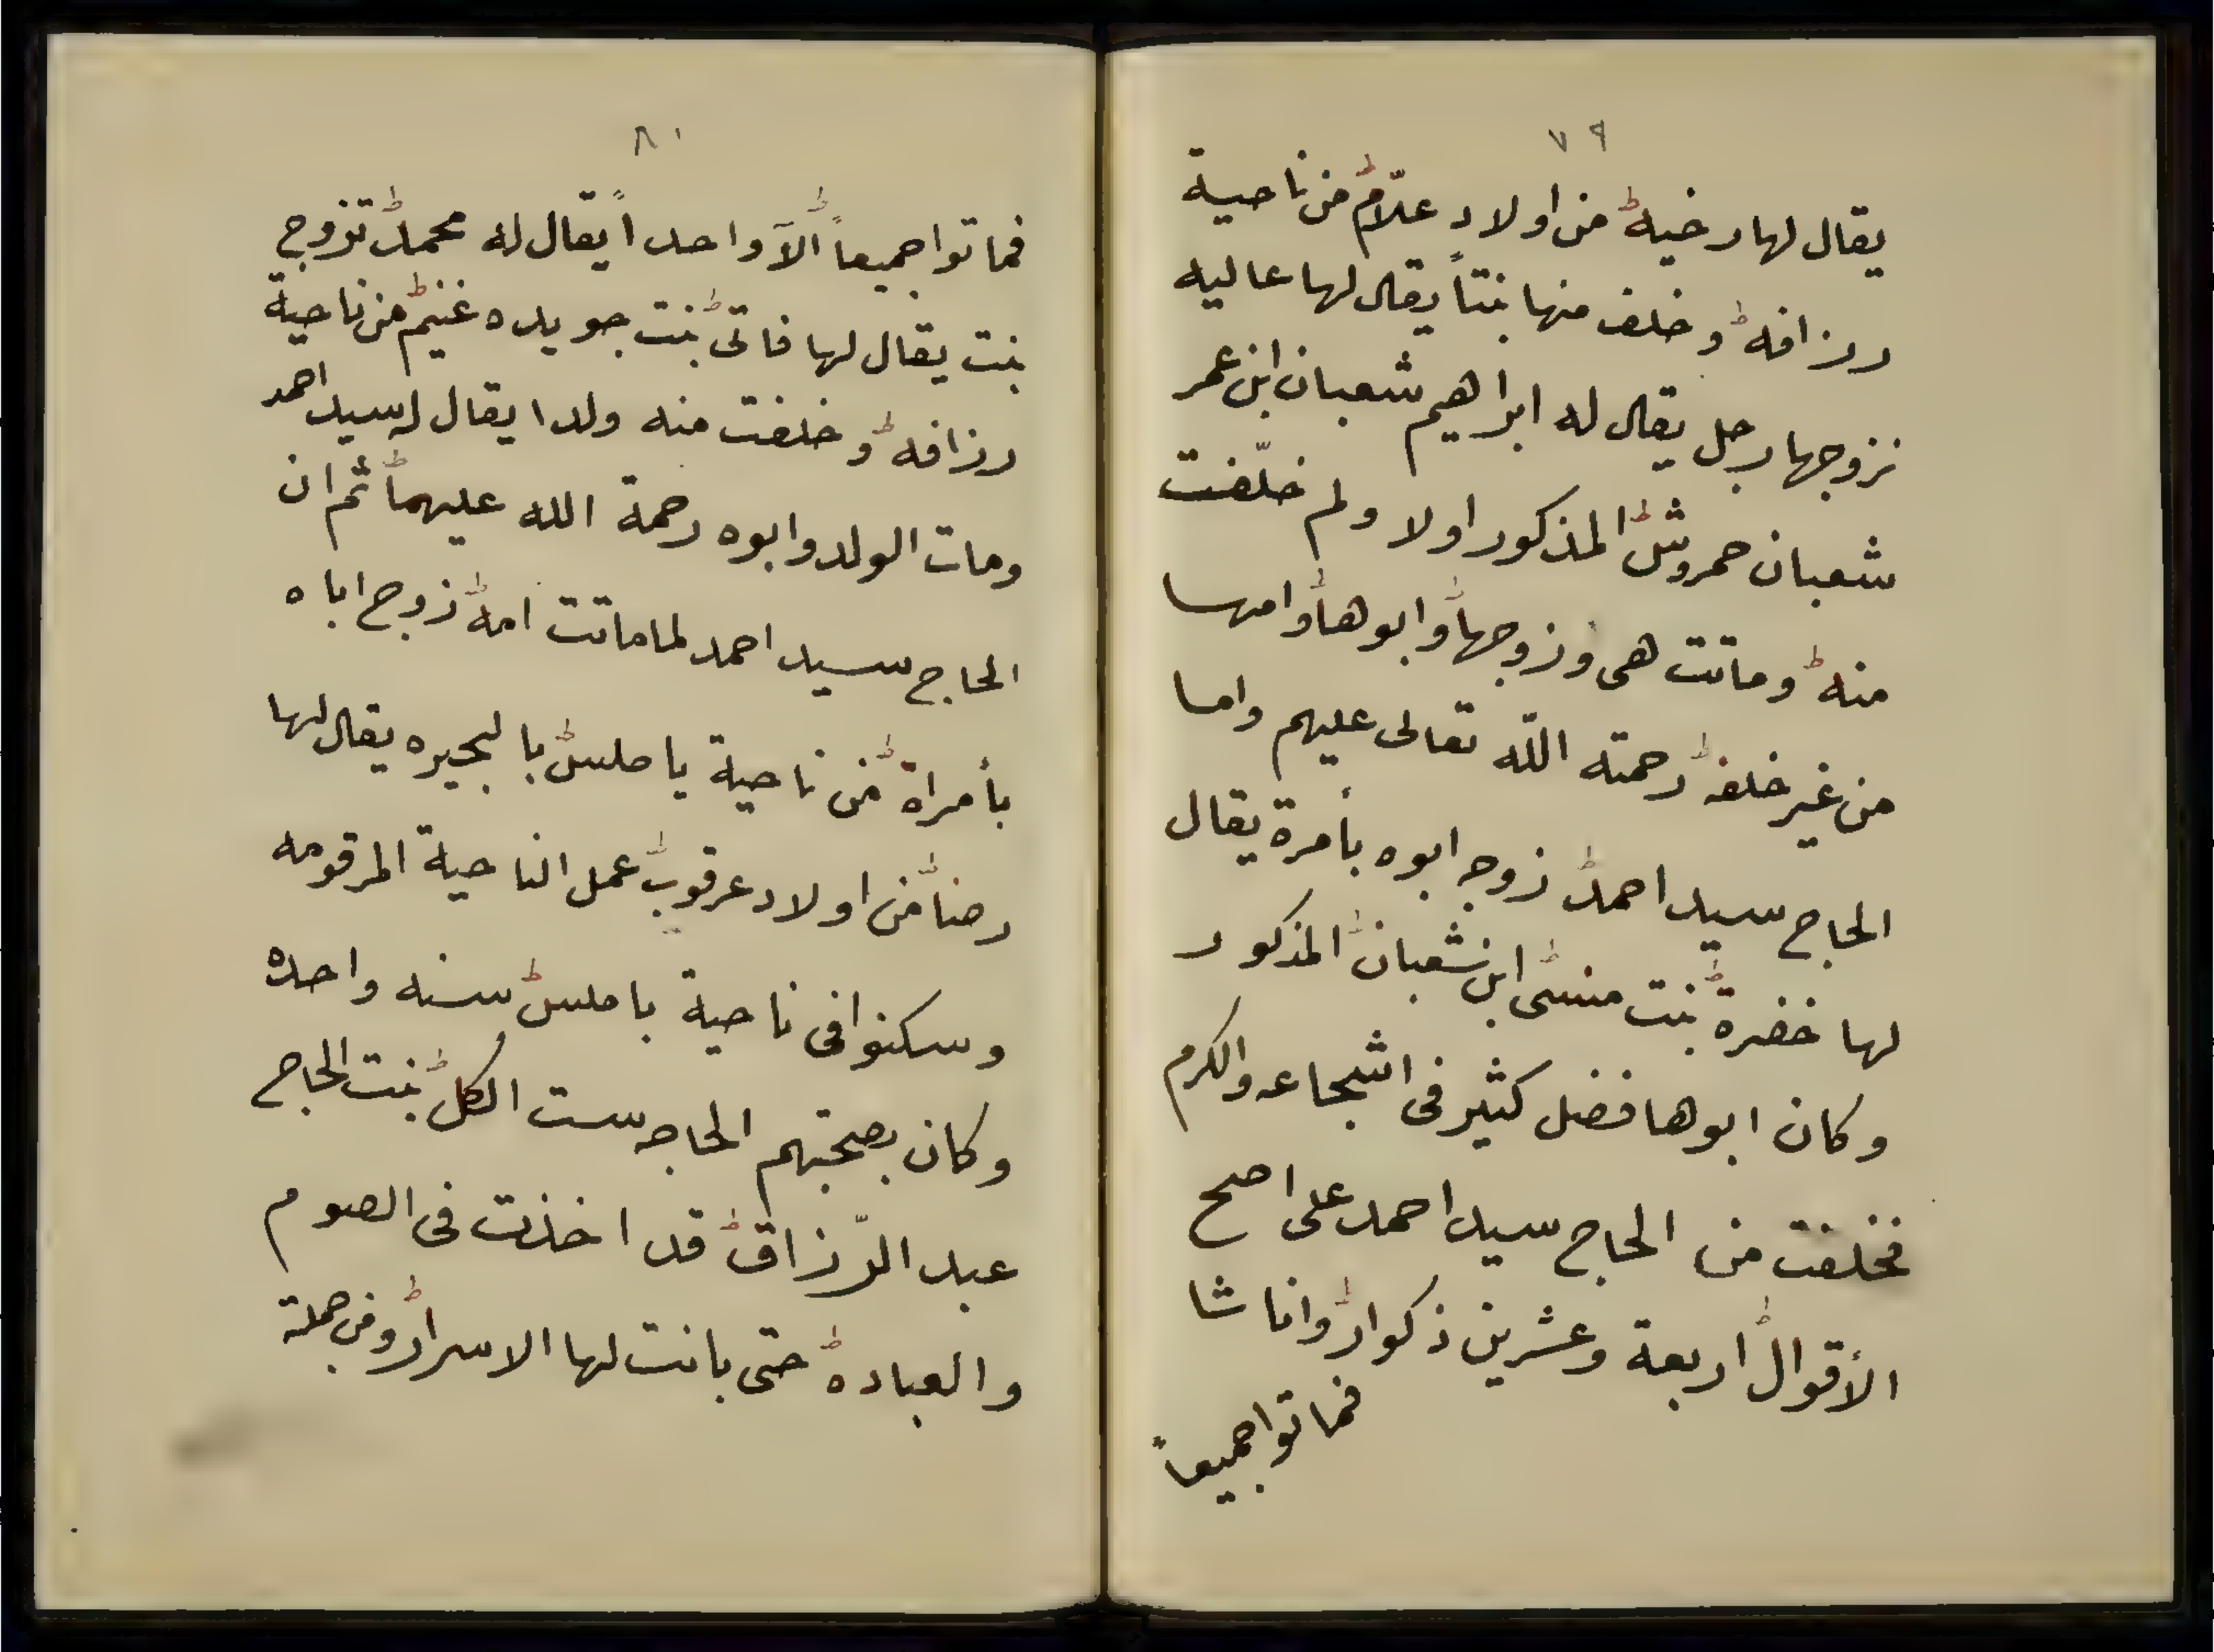 ٧٩
يقال لها رخيه من اولاد علّام من ناحية
رزافه وخلف منها بنتاً يقال لها عاليه
تزوجها رجل يقال له ابراهيم شعبان ابن عمر
شعبان حمروش المذكور اولا ولم خلّفت
منه وماتت هى وزوجها وابوها وامها
من غير خلفه رحمته اللّه تعالى عليهم واما
الحاج سيد احمد زوجه ابوه بأمرة يقال
لها خضرة بنت منسى ابن شعبان المذكور
وكان ابوها فضل كثير فى اشجاعه والكرم
فخلفت من الحاج سيد احمد على اصح
الأقوال اربعة وعشرين ذكوار واناشا
فماتوا جميعاً
٨٠
فماتوا جميعاً الآ واحداً يقال له محمد تزوج
بنت يقال لها فاتى بنت جويده غنيم من ناحية
رزافه وخلفت منه ولدا يقال له سيد احمد
ومات الولد وابوه رحمة الله عليهما ثم ان
الحاج سيد احمد لما ماتت امه زوج اباه
بأمراة من ناحية يا ملس بالبحيره يقال لها
رضا من اولاد عرقوب عمل الناحية المرقومه
وسكنوا فى ناحية با ملس سنه واحده
وكان بصحبتهم الحاجه ست الكل بنت الحاج
عبد الرّزاق قد اخذت فى الصوم
والعباده حتى بانت لها الاسرار ومن جملة